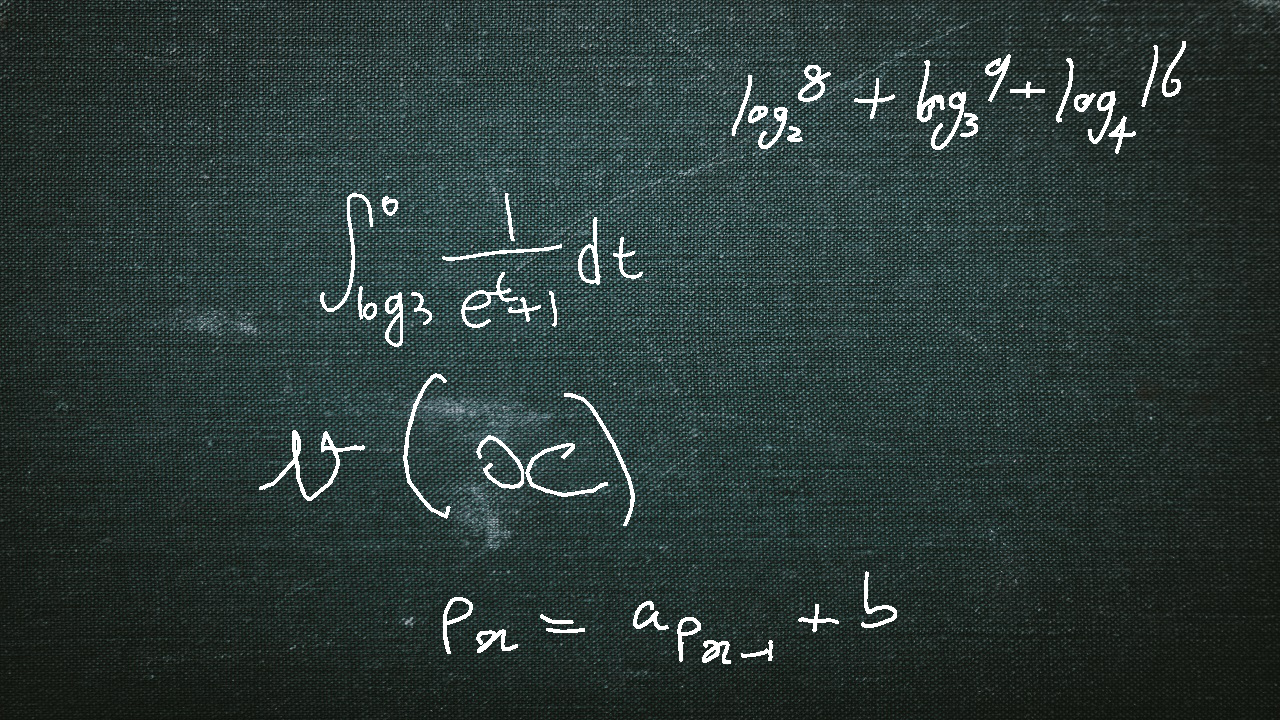 log₂⁸ + log₃⁹ + log₄16
∫_{log3}^{0} \frac{1}{e^t+1} dt
v(x)
Pₙ = aPₙ₋₁ + b